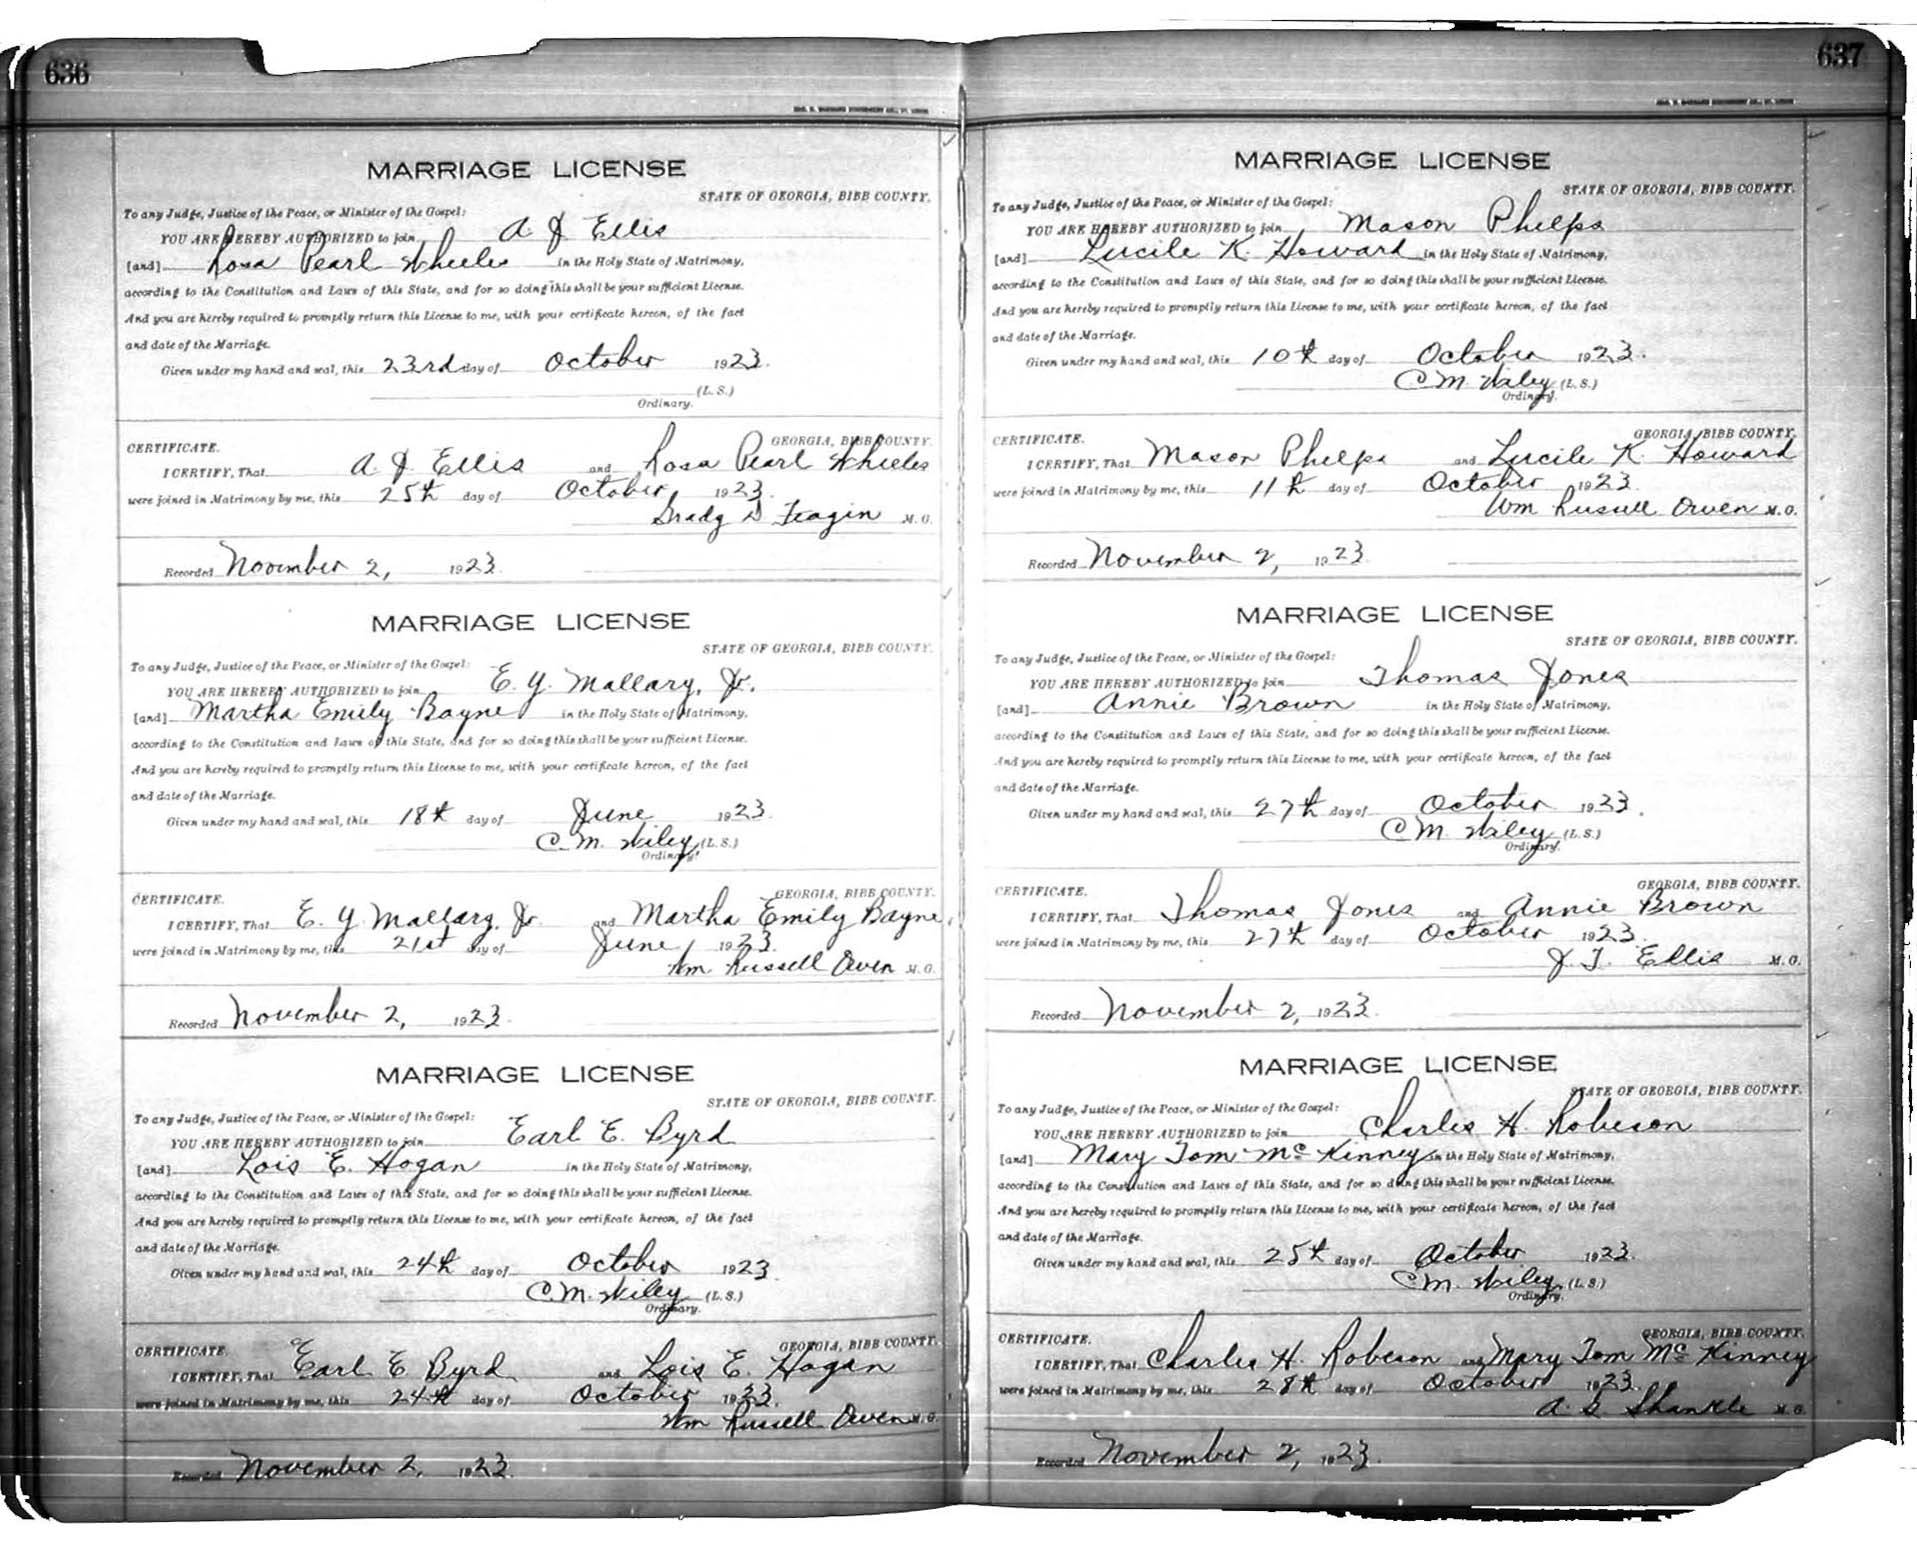 636
MARRIAGE LICENSE
STATE OF GEORGIA, BIBB COUNTY.
To any Judge, Justice of the Peace, or Minister of the Gospel:
YOU ARE HEREBY AUTHORIZED to join A J Ellis
[and] Rosa Pearl Wheeles in the Holy State of Matrimony,
according to the Constitution and Laws of this State, and for so doing this shall be your sufficient License.
And you are hereby required to promptly return this License to me, with your certificate hereon, of the fact
and date of the Marriage.
Given under my hand and seal, this 23rd day of October 1923.
(L.S.)
Ordinary.
CERTIFICATE. GEORGIA, BIBB COUNTY.
I CERTIFY, That A. J. Ellis and Rosa Pearl Wheeles
were joined in Matrimony by me, this 25th day of October 1923.
Grady D Feagin M.G.
Recorded November 2, 1923.
MARRIAGE LICENSE
STATE OF GEORGIA, BIBB COUNTY.
To any Judge, Justice of the Peace, or Minister of the Gospel:
YOU ARE HEREBY AUTHORIZED to join E. Y. Mallary, Jr.
[and] Martha Emily Bayne in the Holy State of Matrimony,
according to the Constitution and Laws of this State, and for so doing this shall be your sufficient License.
And you are hereby required to promptly return this License to me, with your certificate hereon, of the fact
and date of the Marriage.
Given under my hand and seal, this 18th day of June 1923.
C. M. Wiley (L.S.)
Ordinary.
CERTIFICATE. GEORGIA, BIBB COUNTY.
I CERTIFY, That E. Y Mallary, Jr. and Martha Emily Bayne
were joined in Matrimony by me, this 21st day of June 1923.
Wm. Russell Owen M.G.
Recorded November 2, 1923.
MARRIAGE LICENSE
STATE OF GEORGIA, BIBB COUNTY.
To any Judge, Justice of the Peace, or Minister of the Gospel:
YOU ARE HEREBY AUTHORIZED to join Earl E. Byrd
[and] Lois E. Hogan in the Holy State of Matrimony,
according to the Constitution and Laws of this State, and for so doing this shall be your sufficient License.
And you are hereby required to promptly return this License to me, with your certificate hereon, of the fact
and date of the Marriage.
Given under my hand and seal, this 24th day of October 1923
C. M. Wiley (L.S.)
Ordinary.
CERTIFICATE. GEORGIA, BIBB COUNTY.
I CERTIFY, That Earl E Byrd and Lois E. Hogan
were joined in Matrimony by me, this 24th day of October 1923.
Wm Russell Owen M.G.
Recorded November 2, 1923.
637
MARRIAGE LICENSE
STATE OF GEORGIA, BIBB COUNTY.
To any Judge, Justice of the Peace, or Minister of the Gospel:
YOU ARE HEREBY AUTHORIZED to join Mason Phelps
[and] Lucile K. Howard in the Holy State of Matrimony,
according to the Constitution and Laws of this State, and for so doing this shall be your sufficient License.
And you are hereby required to promptly return this License to me, with your certificate hereon, of the fact
and date of the Marriage.
Given under my hand and seal, this 10th day of October 1923.
C M. Wiley (L.S.)
Ordinary.
CERTIFICATE. GEORGIA, BIBB COUNTY.
I CERTIFY, That Mason Phelps and Lucile K. Howard
were joined in Matrimony by me, this 11th day of October 1923.
Wm Russell Owen M.G.
Recorded November 2, 1923.
MARRIAGE LICENSE
STATE OF GEORGIA, BIBB COUNTY.
To any Judge, Justice of the Peace, or Minister of the Gospel:
YOU ARE HEREBY AUTHORIZED to join Thomas Jones
[and] Annie Brown in the Holy State of Matrimony,
according to the Constitution and Laws of this State, and for so doing this shall be your sufficient License.
And you are hereby required to promptly return this License to me, with your certificate hereon, of the fact
and date of the Marriage.
Given under my hand and seal, this 27th day of October 1923.
C M. Wiley (L.S.)
Ordinary.
CERTIFICATE. GEORGIA, BIBB COUNTY.
I CERTIFY, That Thomas Jones and Annie Brown
were joined in Matrimony by me, this 27th day of October 1923.
J. T. Ellis M.G.
Recorded November 2, 1923.
MARRIAGE LICENSE
STATE OF GEORGIA, BIBB COUNTY.
To any Judge, Justice of the Peace, or Minister of the Gospel:
YOU ARE HEREBY AUTHORIZED to join Charles H. Robeson
[and] Mary Tom McKinney in the Holy State of Matrimony,
according to the Constitution and Laws of this State, and for so doing this shall be your sufficient License.
And you are hereby required to promptly return this License to me, with your certificate hereon, of the fact
and date of the Marriage.
Given under my hand and seal, this 25th day of October 1923.
C M. Wiley (L.S.)
Ordinary.
CERTIFICATE. GEORGIA, BIBB COUNTY.
I CERTIFY, That Charles H. Robeson and Mary Tom McKinney
were joined in Matrimony by me, this 28th day of October 1923.
A. G Shankle M.G.
Recorded November 2, 1923.